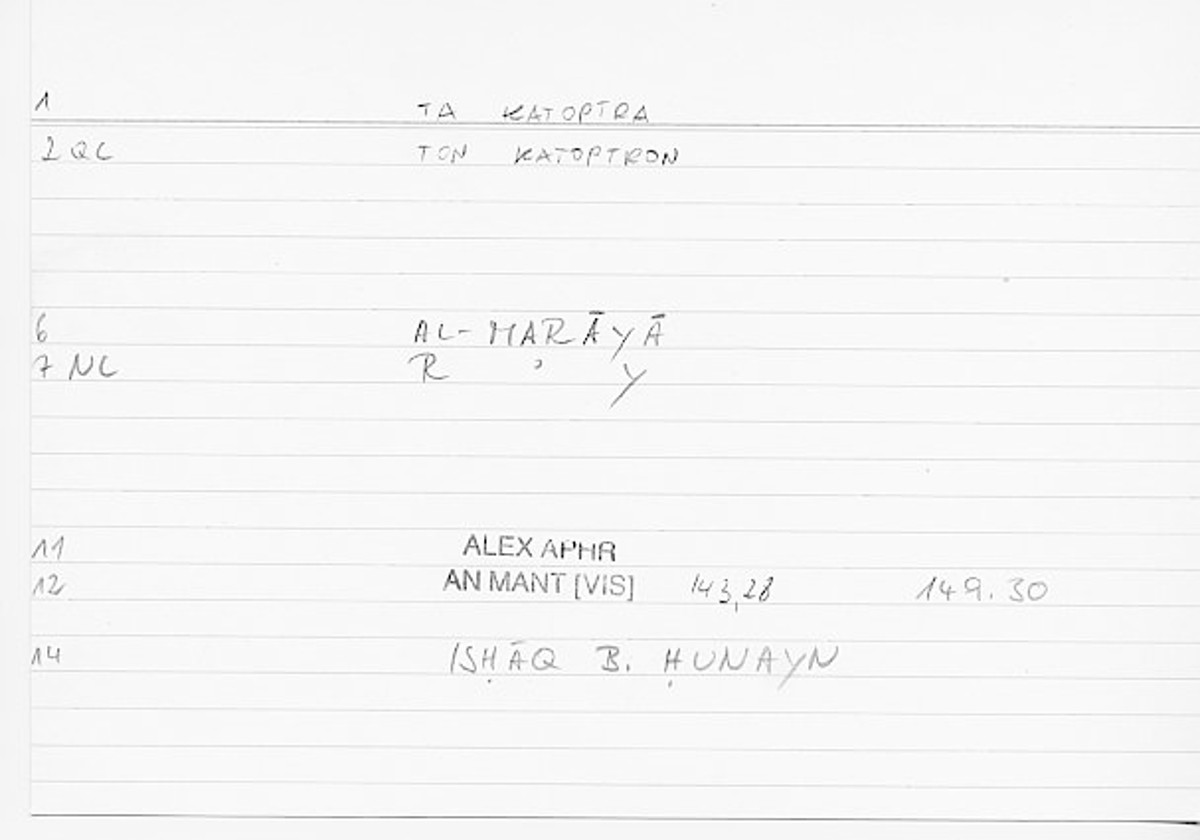 1 TA KATOPTRA
2 QC TON KATOPTRON
6 AL-MARĀYĀ
7 NC R ʾ Y
11 ALEX APHR
12 AN MANT [VIS] 143,28 149.30
14 ISḤĀQ B. ḤUNAYN